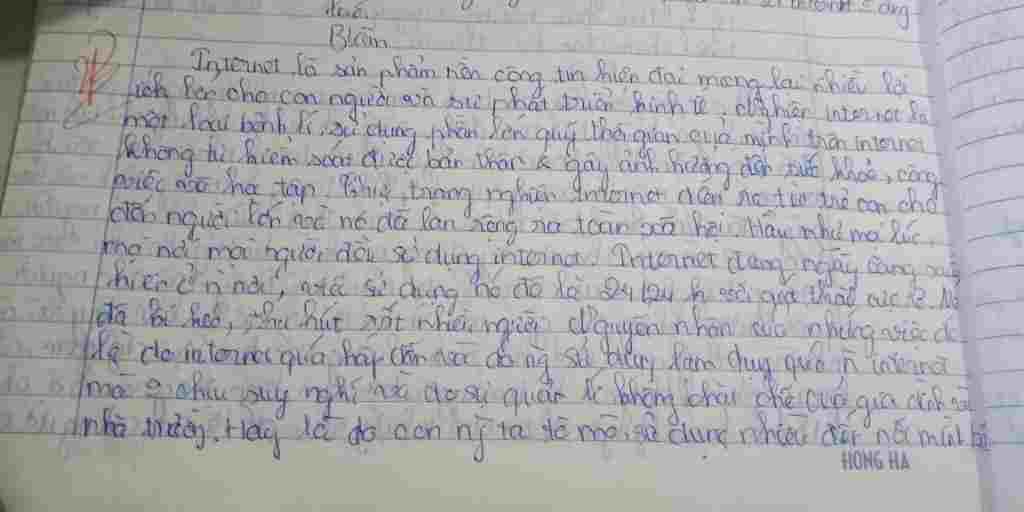 Blàn
Internet là sản phẩm nền công tin hiện đại mang lại nhiều lợi
ích lớn cho con người và sự phát triển kinh tế, nghiện internet là
một loại bệnh lí, sử dụng phần lớn quỹ thời gian của mình trên internet
không tự kiểm soát được bản thân & gây ảnh hưởng đến sức khoẻ, công
việc và học tập. Thực trạng nghiện internet diễn ra từ trẻ con cho
đến người lớn và nó đã lan rộng ra toàn xã hội. Hầu như mọi lúc,
mọi nơi mọi người đều sử dụng internet. Internet đang ngày càng
hiện ở n nơi, và sử dụng nó đó là 24/24 h với quá thật cực tệ. Nó
đã lôi kéo, thu hút rất nhiều người. Nguyên nhân của những việc đó
là do internet quá hấp dẫn và do ng sử dụng lạm dụng quá n internet
mà 0 chịu suy nghĩ và do sự quản lí không chặt chẽ của gia đình và
nhà trường. Hay là do con ng ta tò mò, sử dụng nhiều đến nỗi mình
HONG HA